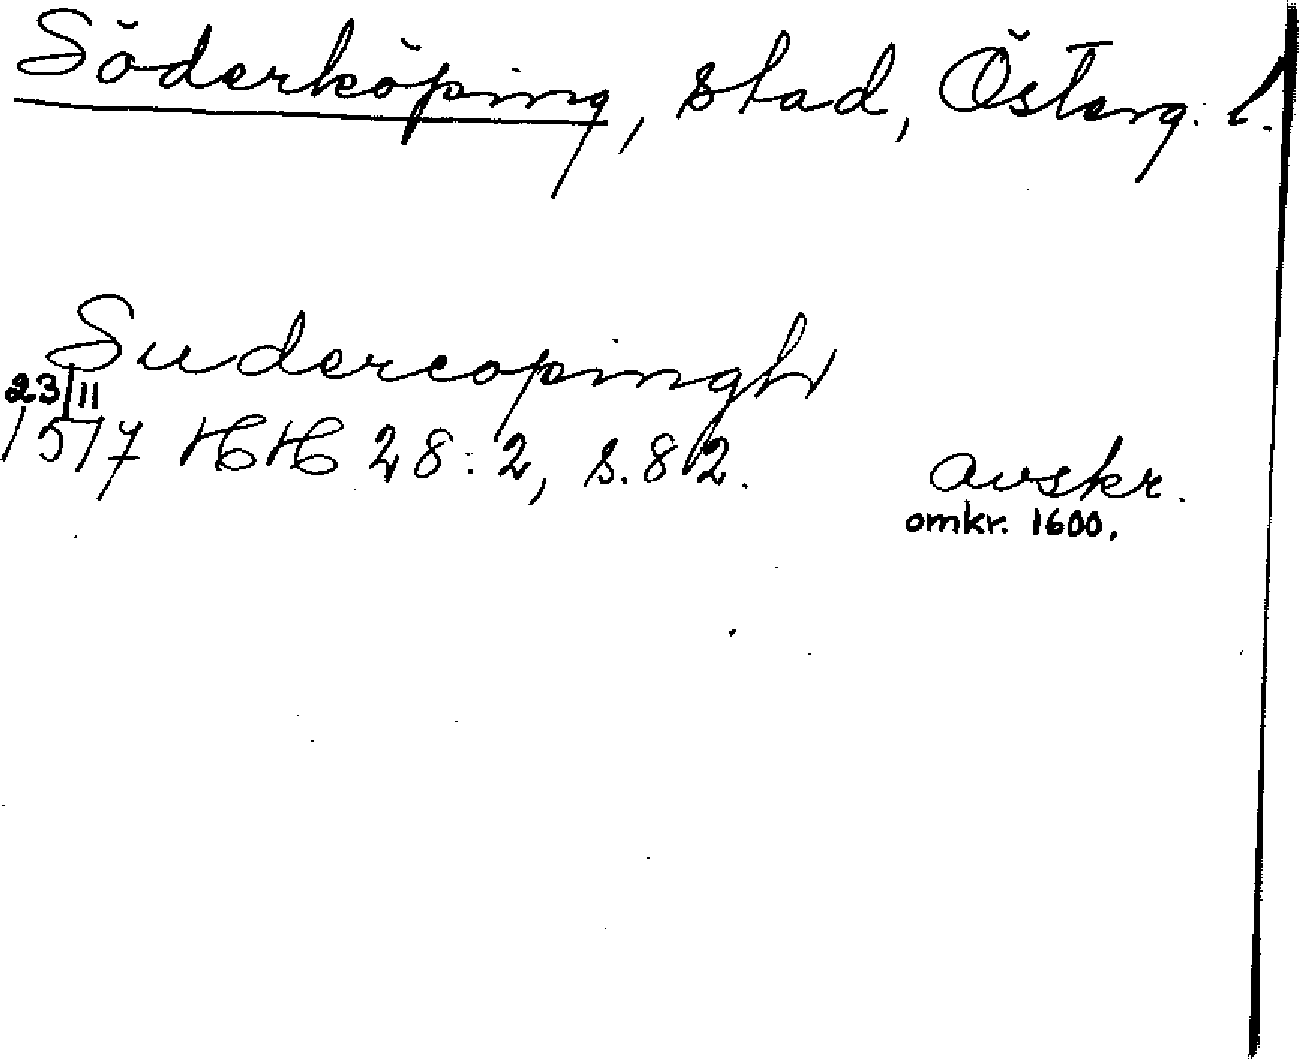 Söderköping, stad, Österg. l.
Sudercopingh
23/11
1517 HH 28:2, s. 82. avskr.
omkr. 1600.